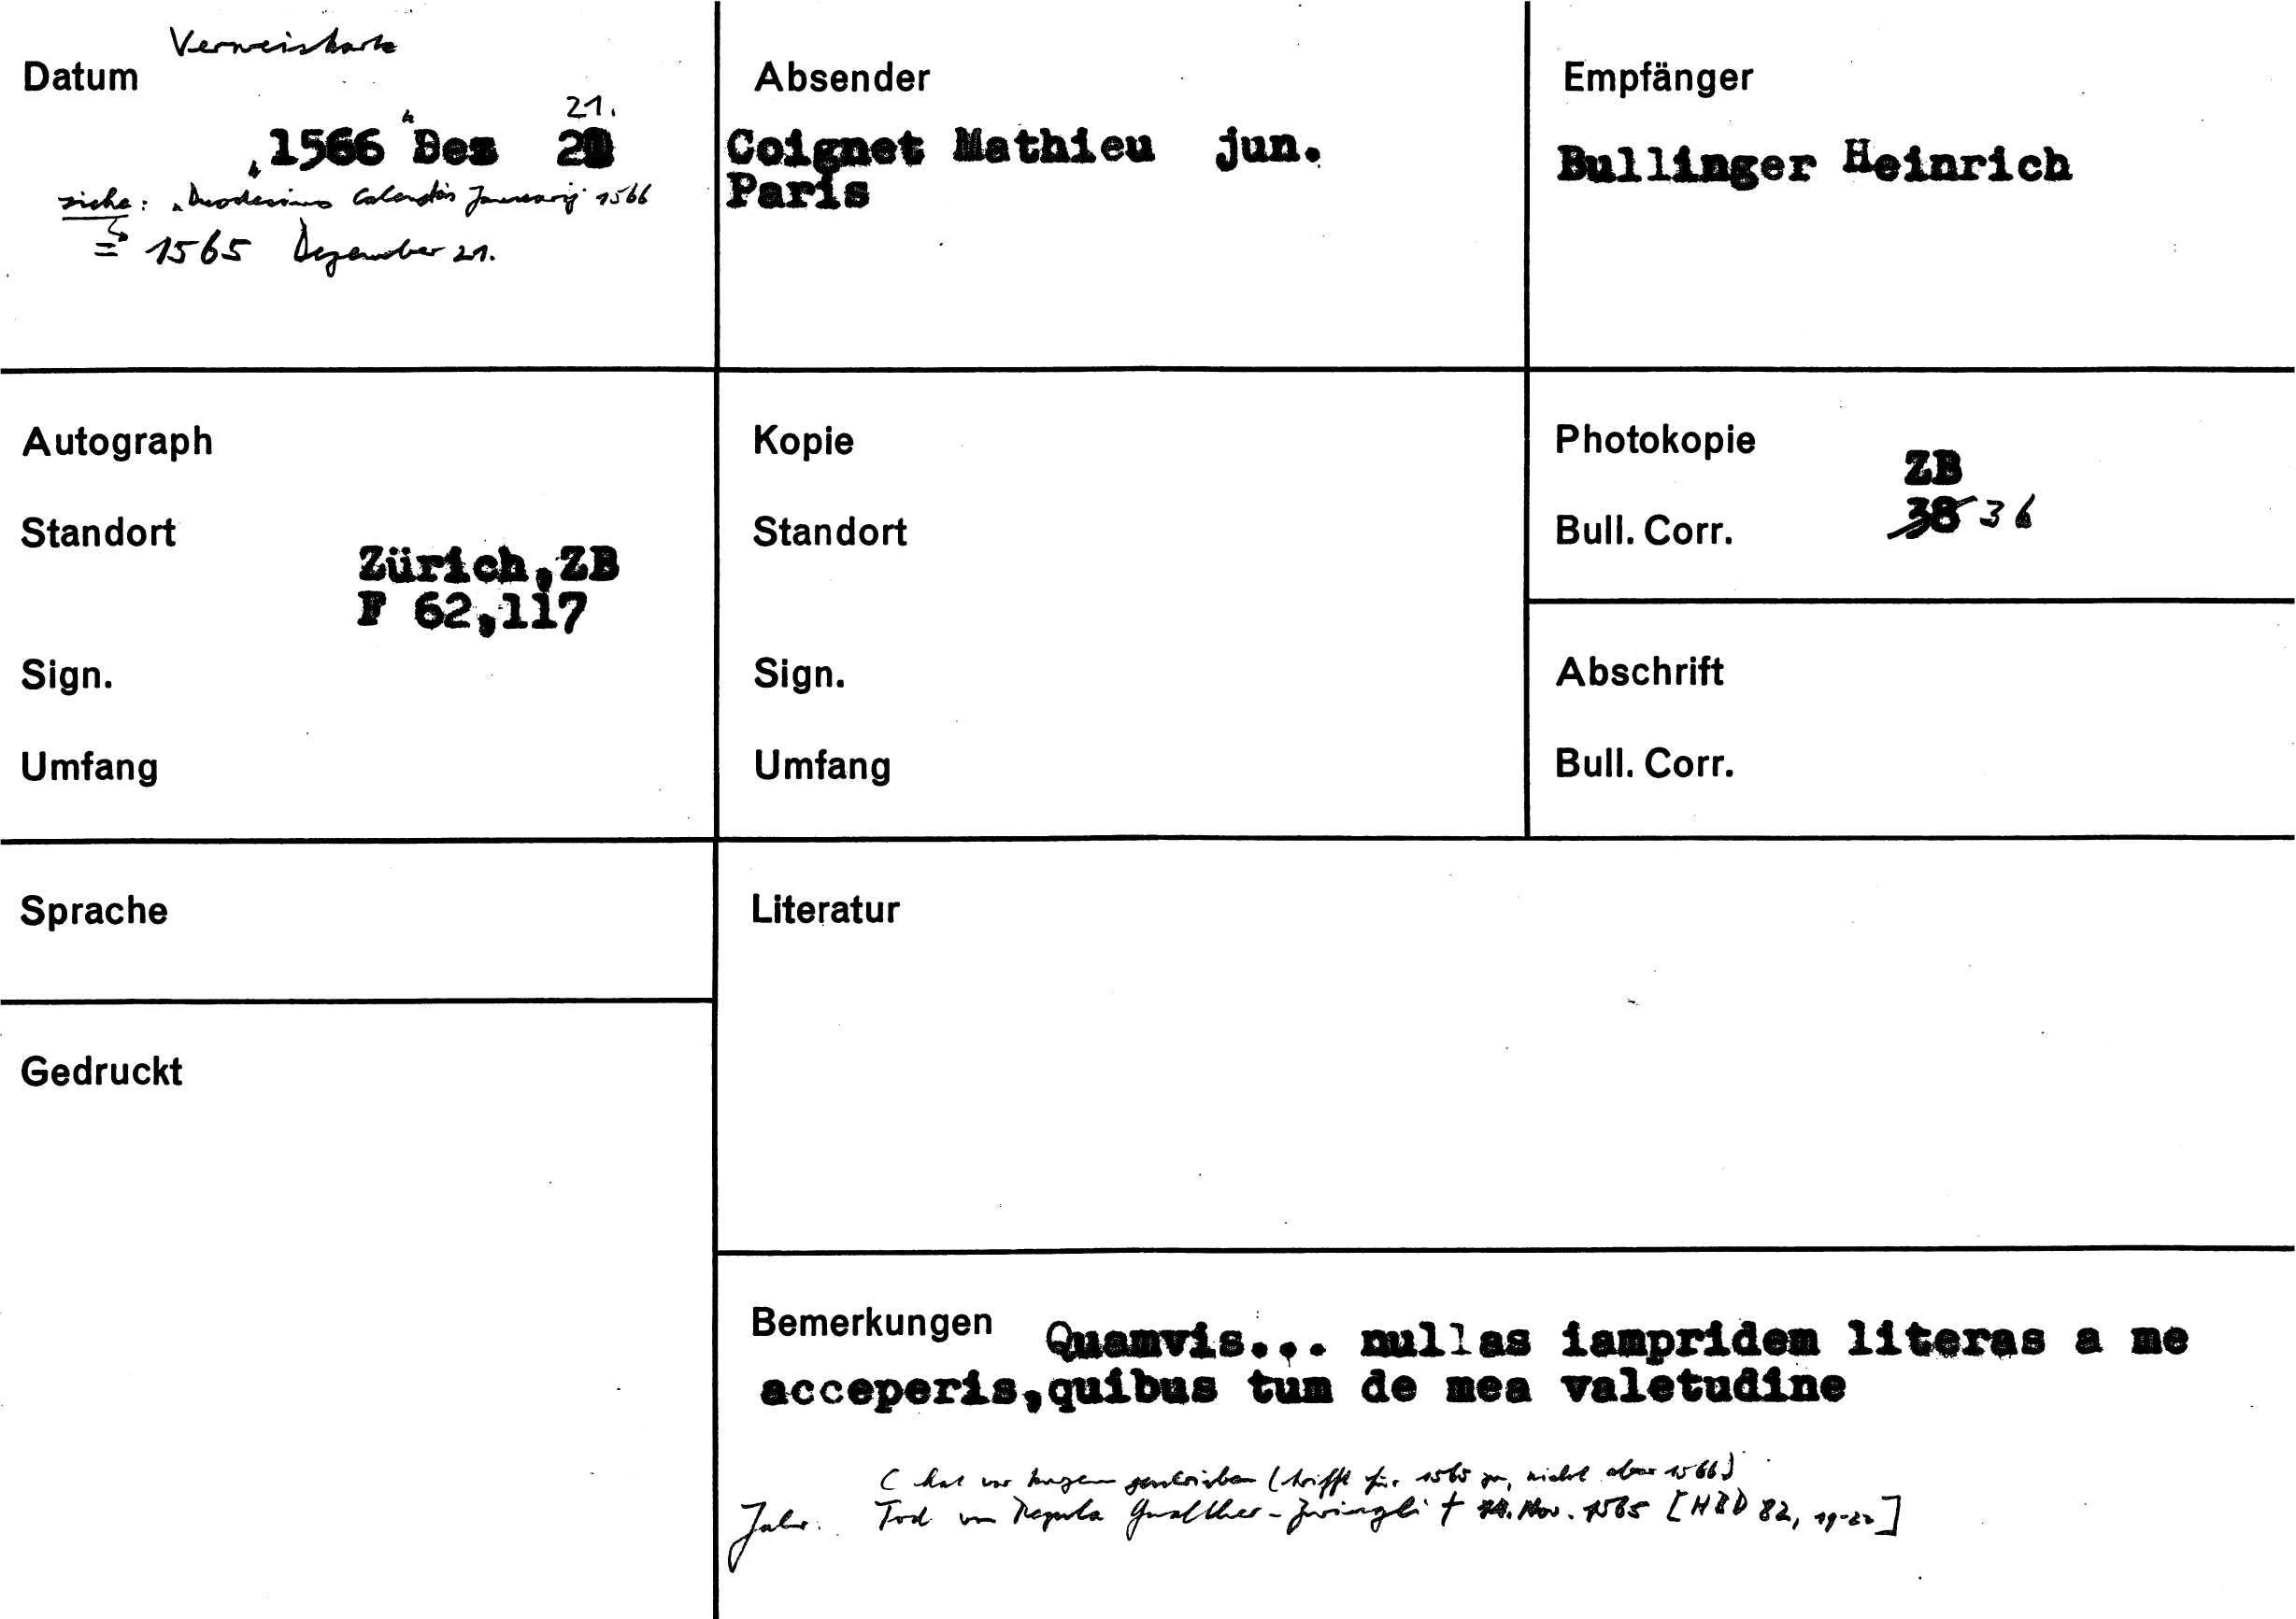 Verweiskarte
Datum
21.
"1566" Dez 2
siehe: "Duodecimo Calendas Januarij 1566
= 1565 Dezember 21.
Absender
Coignet Mathieu jun.
Paris
Empfänger
Bullinger Heinrich
Autograph
Standort
Zürich,ZB
F 62,117
Sign.
Umfang
Kopie
Standort
Sign.
Umfang
Photokopie
ZB
Bull. Corr. 38 36
Abschrift
Bull. Corr.
Sprache
Gedruckt
Literatur
Bemerkungen Quamvis... nullas iampridem literas a me
acceperis,quibus tum de mea valetudine
C hat vor kurzem geschrieben (trifft für 1565 zu, nicht aber 1566)
Jahr: Tod von Regula Gwalther-Zwingli † Nov. 1565 [HBD 82, 19-22]